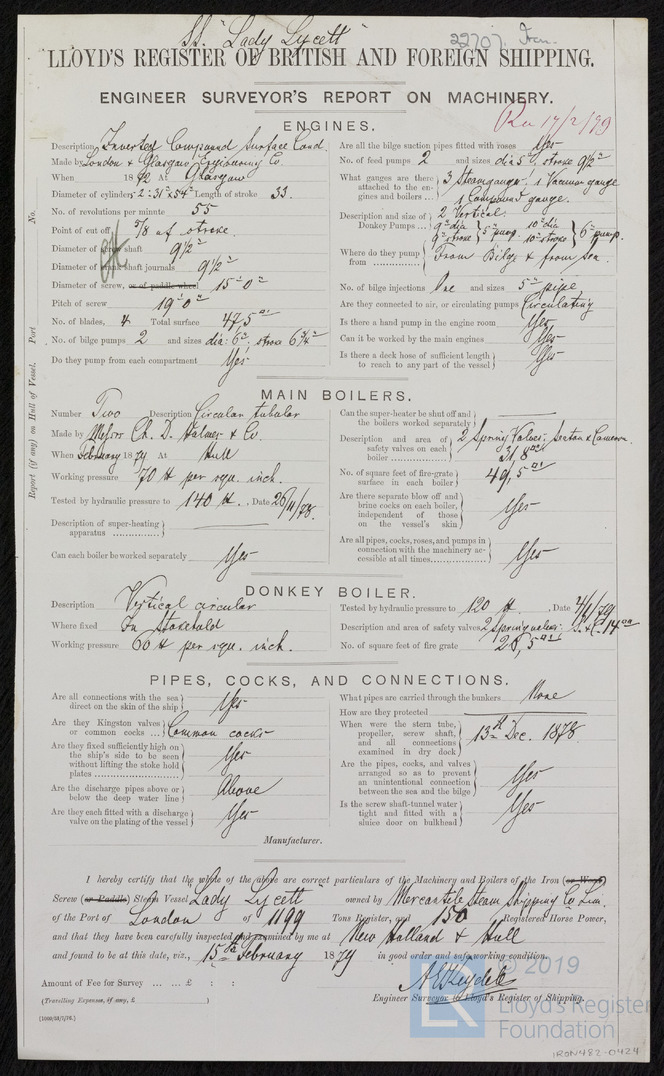 SS. "Lady Lycett" 22707. Iron.
LLOYD'S REGISTER OF BRITISH AND FOREIGN SHIPPING.
ENGINEER SURVEYOR'S REPORT ON MACHINERY.
Rec 17/2/79
No. Port
Report (if any) on Hull of Vessel.
ENGINES.
Description Inverted Compound Surface Cond.
Made by London & Glasgow Engineering Co
When 1872 At Glasgow
Diameter of cylinders 2: 31" & 54" Length of stroke 33.
No. of revolutions per minute 55
Point of cut off 5/8 of stroke
Diameter of screw shaft 9 1/2"
Diameter of crank shaft journals 9 1/2"
Diameter of screw, or of paddle wheel 15' 0"
Pitch of screw 19' 0"
No. of blades, 4 Total surface 47,5 □'
No. of bilge pumps 2 and sizes dia: 6"; stroke 6 3/4"
Do they pump from each compartment Yes
Are all the bilge suction pipes fitted with roses Yes
No. of feed pumps 2 and sizes dia 5" stroke 9 1/2"
What gauges are there attached to the engines and boilers ... 3 Steamgauges, 1 Vacuum gauge
1 Compound gauge.
Description and size of Donkey Pumps ... 2 Vertical.
9" dia 9" stroke 5" pump. 10" dia 10" stroke 6" pump.
Where do they pump from From Bilge & from sea.
No. of bilge injections One and sizes 5" pipe
Are they connected to air, or circulating pumps Circulating
Is there a hand pump in the engine room Yes
Can it be worked by the main engines Yes
Is there a deck hose of sufficient length to reach to any part of the vessel Yes
MAIN BOILERS.
Number Two Description Circular tubular
Made by Messrs Ch. D. Holmes & Co.
When February 1879 At Hull
Working pressure 70 lb per squ. inch.
Tested by hydraulic pressure to 140 lb. Date 26/11/78.
Description of super-heating apparatus
Can each boiler be worked separately Yes
Can the super-heater be shut off and the boilers worked separately
Description and area of safety valves on each boiler 2 Spring Valves: Seaton & Cameron
31,8 □"
No. of square feet of fire-grate surface in each boiler 49,5 □'
Are there separate blow off and brine cocks on each boiler, independent of those on the vessel's skin Yes
Are all pipes, cocks, roses, and pumps in connection with the machinery accessible at all times Yes
DONKEY BOILER.
Description Vertical circular
Where fixed In Stokehold
Working pressure 60 lb per squ. inch.
Tested by hydraulic pressure to 120 lb. Date 2/1/79
Description and area of safety valves 2 spring valves: S. & C. 14 □"
No. of square feet of fire grate 26,5 □'
PIPES, COCKS, AND CONNECTIONS.
Are all connections with the sea direct on the skin of the ship Yes
Are they Kingston valves or common cocks Common cocks
Are they fixed sufficiently high on the ship's side to be seen without lifting the stoke hold plates Yes
Are the discharge pipes above or below the deep water line Above
Are they each fitted with a discharge valve on the plating of the vessel Yes
What pipes are carried through the bunkers None
How are they protected
When were the stern tube, propeller, screw shaft, and all connections examined in dry dock 13th Dec. 1878.
Are the pipes, cocks, and valves arranged so as to prevent an unintentional connection between the sea and the bilge Yes
Is the screw shaft-tunnel water tight and fitted with a sluice door on bulkhead Yes
Manufacturer.
I hereby certify that the whole of the above are correct particulars of the Machinery and Boilers of the Iron (or Wood)
Screw (or Paddle) Steam Vessel "Lady Lycett" owned by Mercantile Steam Shipping Co Lim.
of the Port of London of 1199 Tons Register, and 150 Registered Horse Power,
and that they have been carefully inspected and examined by me at New Holland & Hull
and found to be at this date, viz., 15th February 1879 in good order and safe working condition.
Amount of Fee for Survey ... ... £ : :
(Travelling Expenses, if any, £ )
Engineer Surveyor to Lloyd's Register of Shipping.
© 2019
LR
Lloyd's Register
Foundation
IRON482-0424